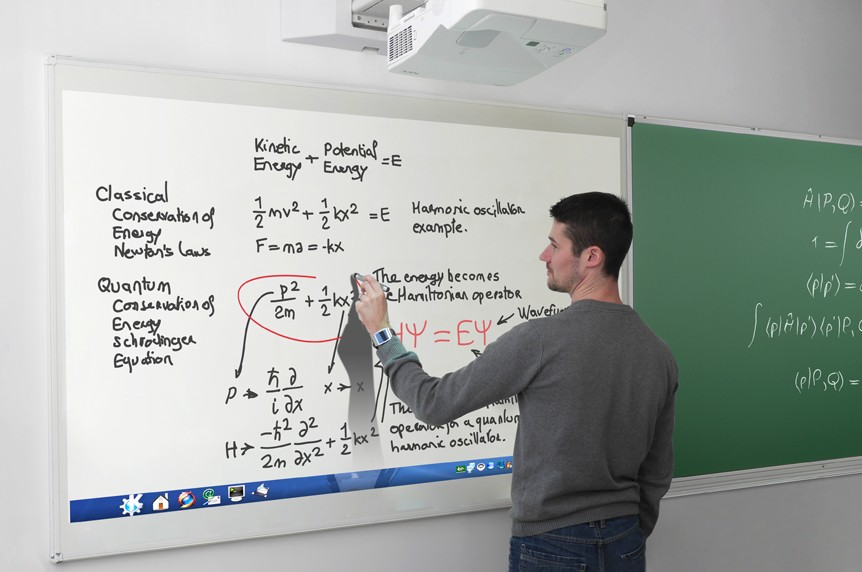 Kinetic Energy + Potential Energy = E
Classical
Conservation of
Energy
Newton's Laws
½mv² + ½kx² = E
F = ma = -kx
Harmonic oscillator
example.
Quantum
Conservation of
Energy
Schrodinger
Equation
p²/2m + ½kx²
The energy becomes
Hamiltonian operator
HΨ = EΨ
P → ħ/i ∂/∂x
x → x
H → -ħ²/2m ∂²/∂x² + ½kx²
The
operator for a quantum
harmonic oscillator.
Ĥ|P,Q⟩ =
1 = ∫
⟨p|p'⟩ =
∫⟨p|Ĥ|p'⟩⟨p'|P,
⟨p|P,Q⟩ =